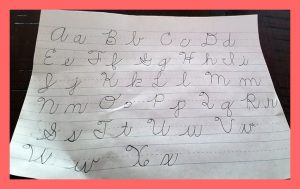 A a B b C c D d
E e F f G g H h I i
J j K k L l M m
N n O o P p Q q R r
S s T t U u V v
W w X x